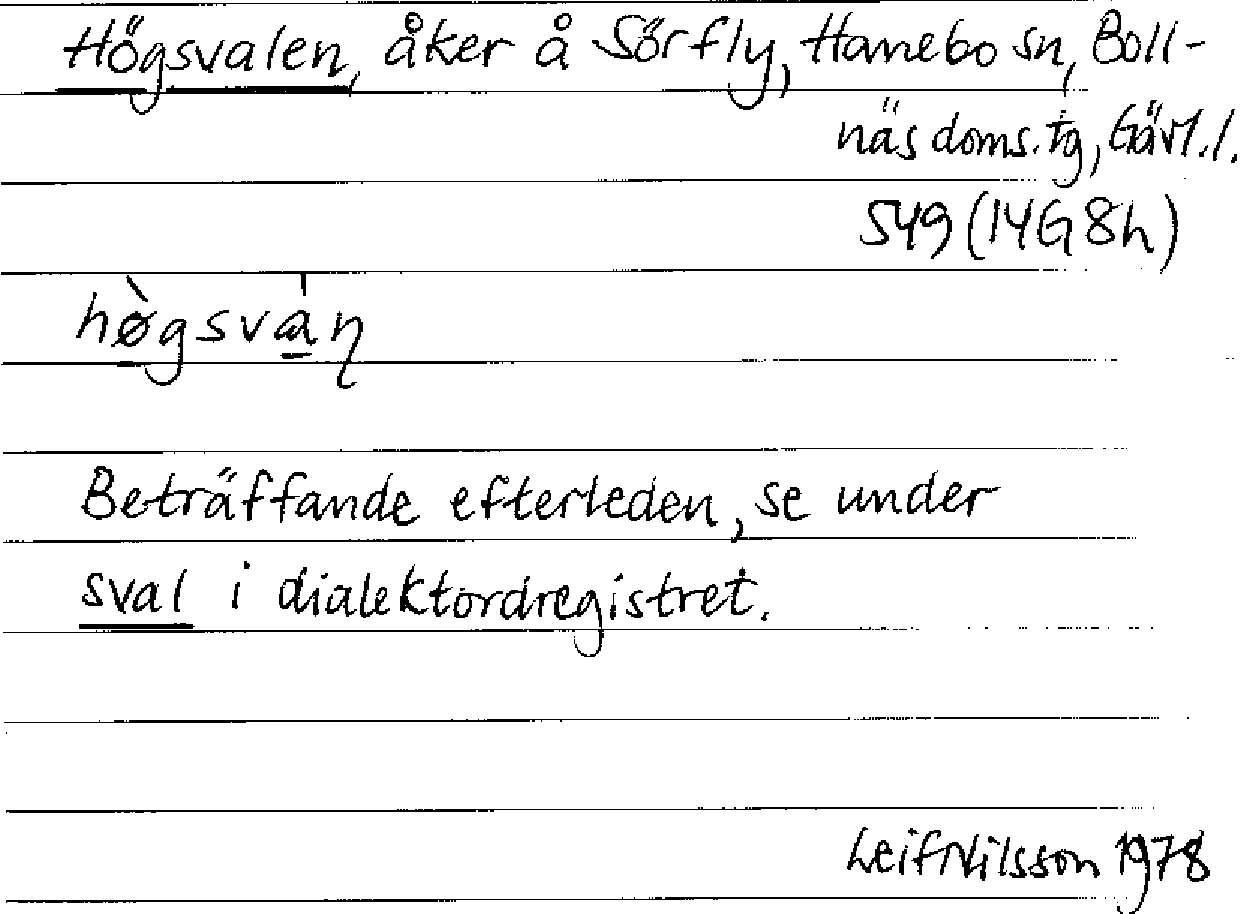 Högsvalen, åker å Sörfly, Hanebo sn, Boll-
näs doms. tg, Gävl. l.
549 (14G 8h)
hø̀gsvàn̥
Beträffande efterleden, se under
sval i dialektordregistret.
Leif Nilsson 1978